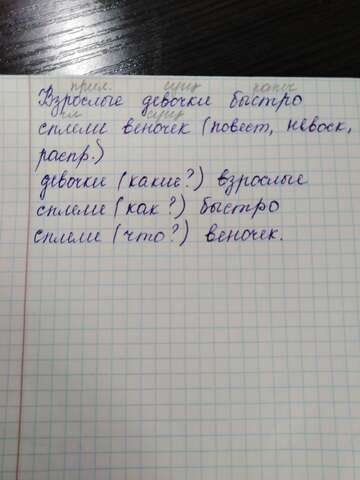 прил. сущ нареч
Взрослые девочки быстро
гл сущ
сплели веночек (повест, невоск,
распр.)
девочки (какие?) взрослые
сплели (как?) быстро
сплели (что?) веночек.